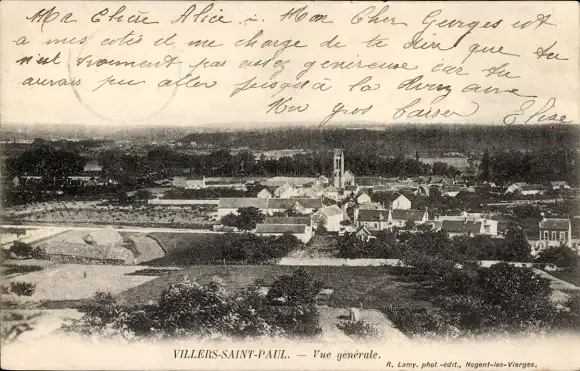 Ma Chère Alice : Mon Cher Georges est
a mes cotés et me charge de te dire que tu
n'es vraiment pas assez genereuse car tu
aurais pu aller jusqu'à la
Mon gros baiser Elise
VILLERS-SAINT-PAUL. — Vue générale.
R. Lamy, phot.-édit., Nogent-les-Vierges.